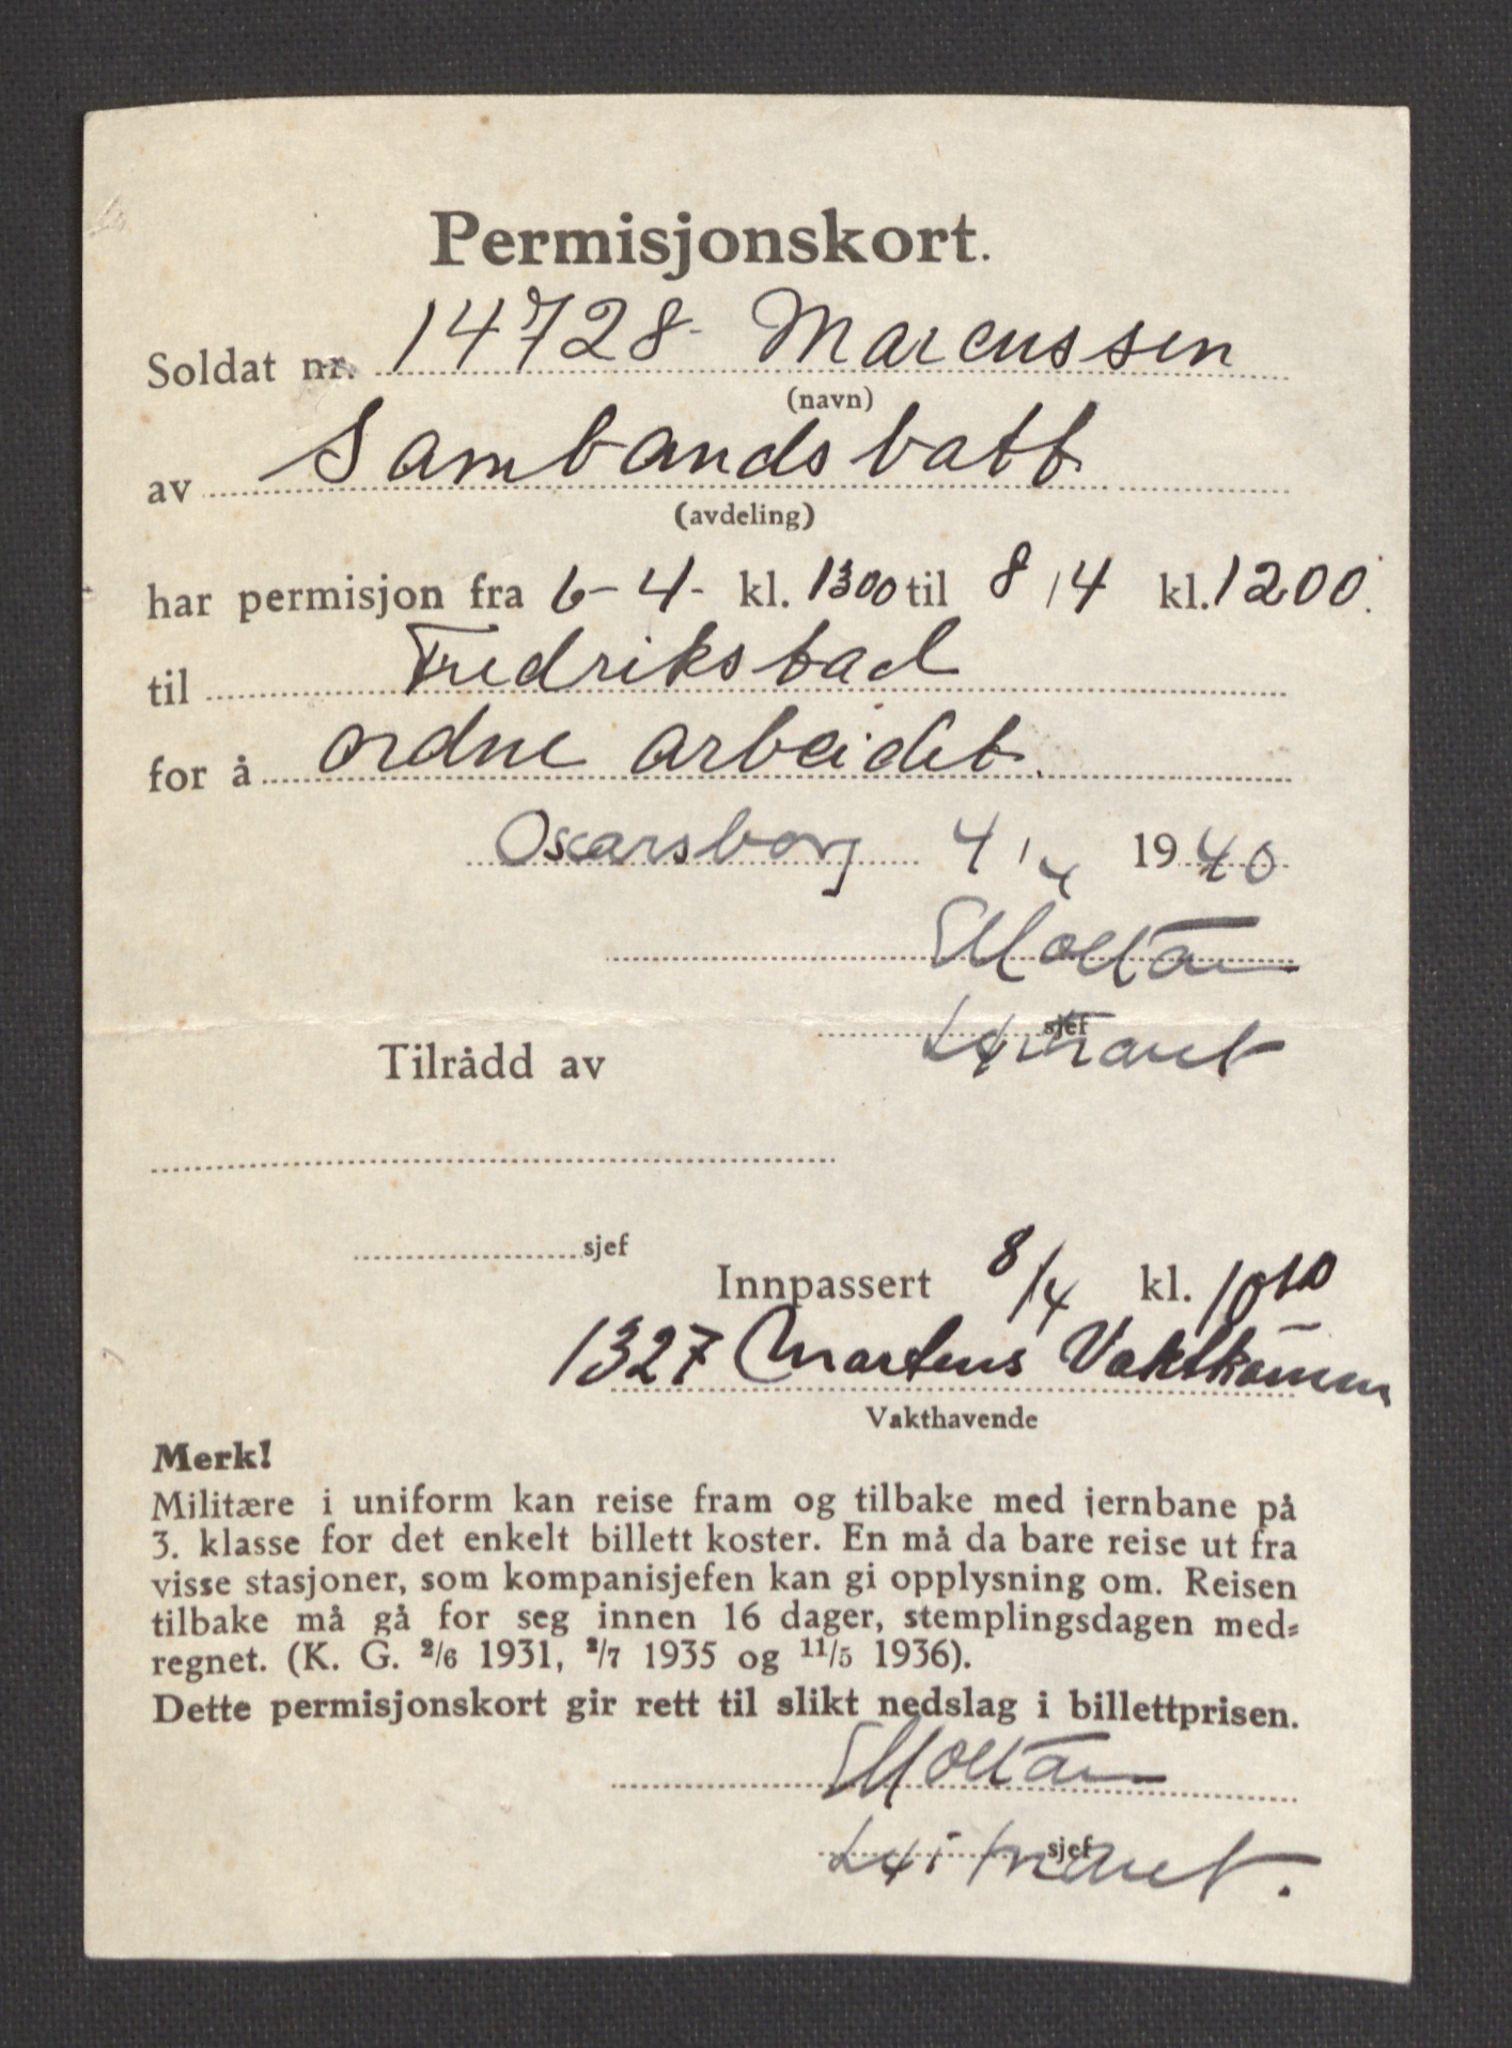 Permisjonskort.
Soldat nr. 14728 - Marcussen
(navn)
av Sambandsbatt
(avdeling)
har permisjon fra 6-4- kl. 1300 til 8/4 kl. 1200.
til Fredrikstad
for å ordne arbeidet.
Oscarsborg 4/4 1940
sjef
Tilrådd av
sjef
Innpassert 8/4 kl. 1010
1327 Martens Vaktkomm
Vakthavende
Merk!
Militære i uniform kan reise fram og tilbake med jernbane på
3. klasse for det enkelt billett koster. En må da bare reise ut fra
visse stasjoner, som kompanisjefen kan gi opplysning om. Reisen
tilbake må gå for seg innen 16 dager, stemplingsdagen med=
regnet. (K. G. 2/6 1931, 2/7 1935 og 11/5 1936).
Dette permisjonskort gir rett til slikt nedslag i billettprisen.
sjef